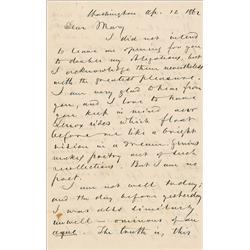 Washington Ap. 12 1862
Dear Mary
I did not intend
to leave an opening for you
to declare my obligations, but
I acknowledge them nevertheless
with the greatest pleasure.
I am very glad to hear from
you, and I love to have
you keep in mind
rides which float
before me like a bright
vision in a dream. Genius
makes poetry out of such
recollections. But I am no
poet.
I am not well today;
and the day before yesterday
I was also similarly
unwell – ominous of an
ague. The truth is, this